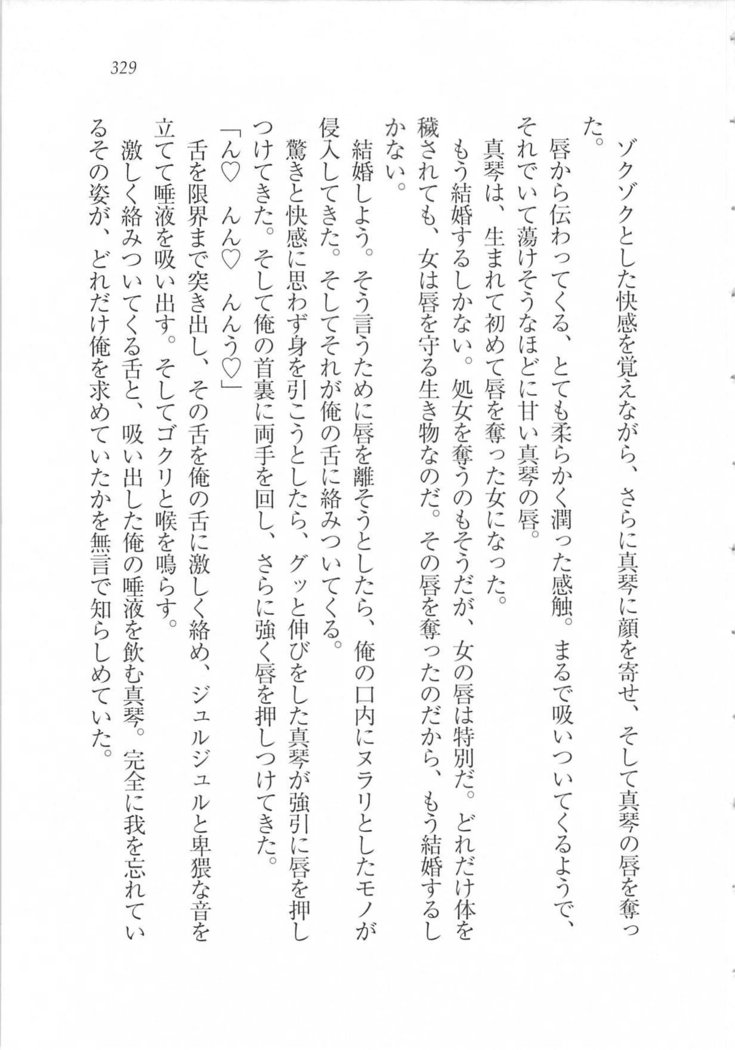 329
ゾクゾクとした快感を覚えながら、さらに真琴に顔を寄せ、そして真琴の唇を奪っ
た。
唇から伝わってくる、とても柔らかく潤った感触。まるで吸いついてくるようで、
それでいて蕩けそうなほどに甘い真琴の唇。
真琴は、生まれて初めて唇を奪った女になった。
もう結婚するしかない。処女を奪うのもそうだが、女の唇は特別だ。どれだけ体を
穢されても、女は唇を守る生き物なのだ。その唇を奪ったのだから、もう結婚するし
かない。
結婚しよう。そう言うために唇を離そうとしたら、俺の口内にヌラリとしたモノが
侵入してきた。そしてそれが俺の舌に絡みついてくる。
驚きと快感に思わず身を引こうとしたら、グッと伸びをした真琴が強引に唇を押し
つけてきた。そして俺の首裏に両手を回し、さらに強く唇を押しつけてきた。
「ん♡　んん♡　んんう♡」
舌を限界まで突き出し、その舌を俺の舌に激しく絡め、ジュルジュルと卑猥な音を
立てて唾液を吸い出す。そしてゴクリと喉を鳴らす。
激しく絡みついてくる舌と、吸い出した俺の唾液を飲む真琴。完全に我を忘れてい
るその姿が、どれだけ俺を求めていたかを無言で知らしめていた。